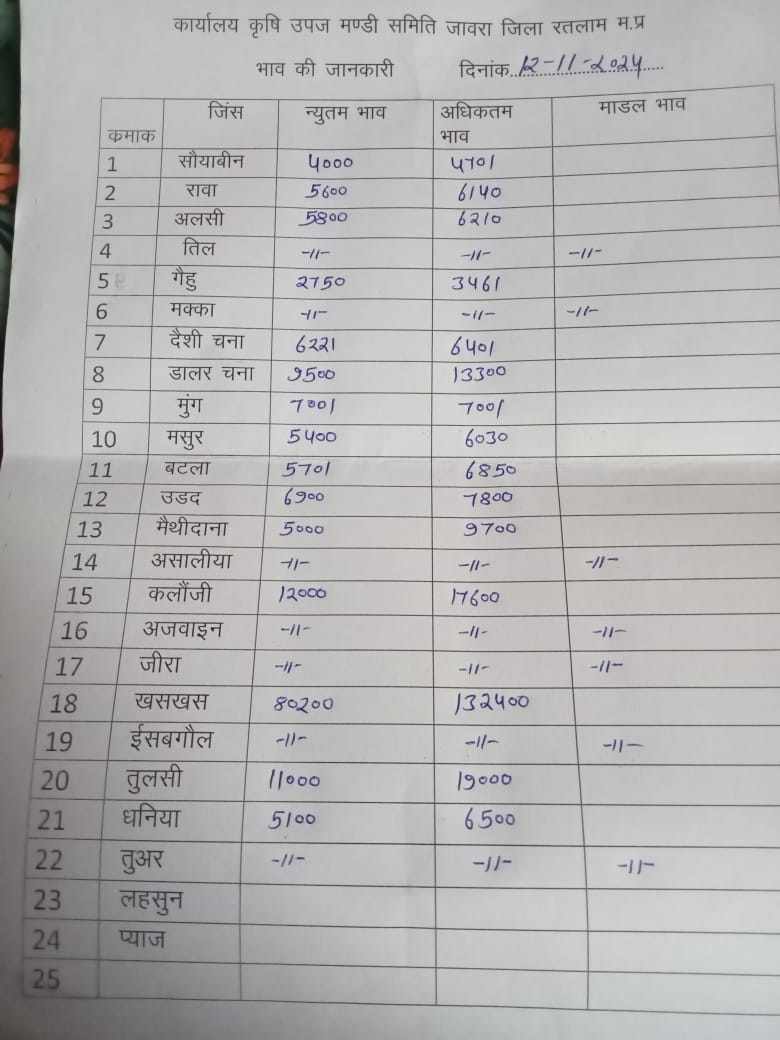 कार्यालय कृषि उपज मण्डी समिति जावरा जिला रतलाम म.प्र
भाव की जानकारी दिनांक 12-11-2024
कमाक जिंस न्युतम भाव अधिकतम भाव माडल भाव
1 सौयाबीन 4000 4701
2 रावा 5600 6140
3 अलसी 5800 6210
4 तिल -11- -11- -11-
5 गैहु 2750 3461
6 मक्का -11- -11- -11-
7 दैशी चना 6221 6401
8 डालर चना 9500 13300
9 मुंग 7001 7001
10 मसुर 5400 6030
11 बटला 5701 6850
12 उडद 6900 7800
13 मैथीदाना 5000 9700
14 असालीया -11- -11- -11-
15 कलौंजी 12000 17600
16 अजवाइन -11- -11- -11-
17 जीरा -11- -11- -11-
18 खसखस 80200 132400
19 ईसबगौल -11- -11- -11-
20 तुलसी 11000 19000
21 धनिया 5100 6500
22 तुअर -11- -11- -11-
23 लहसुन
24 प्याज
25